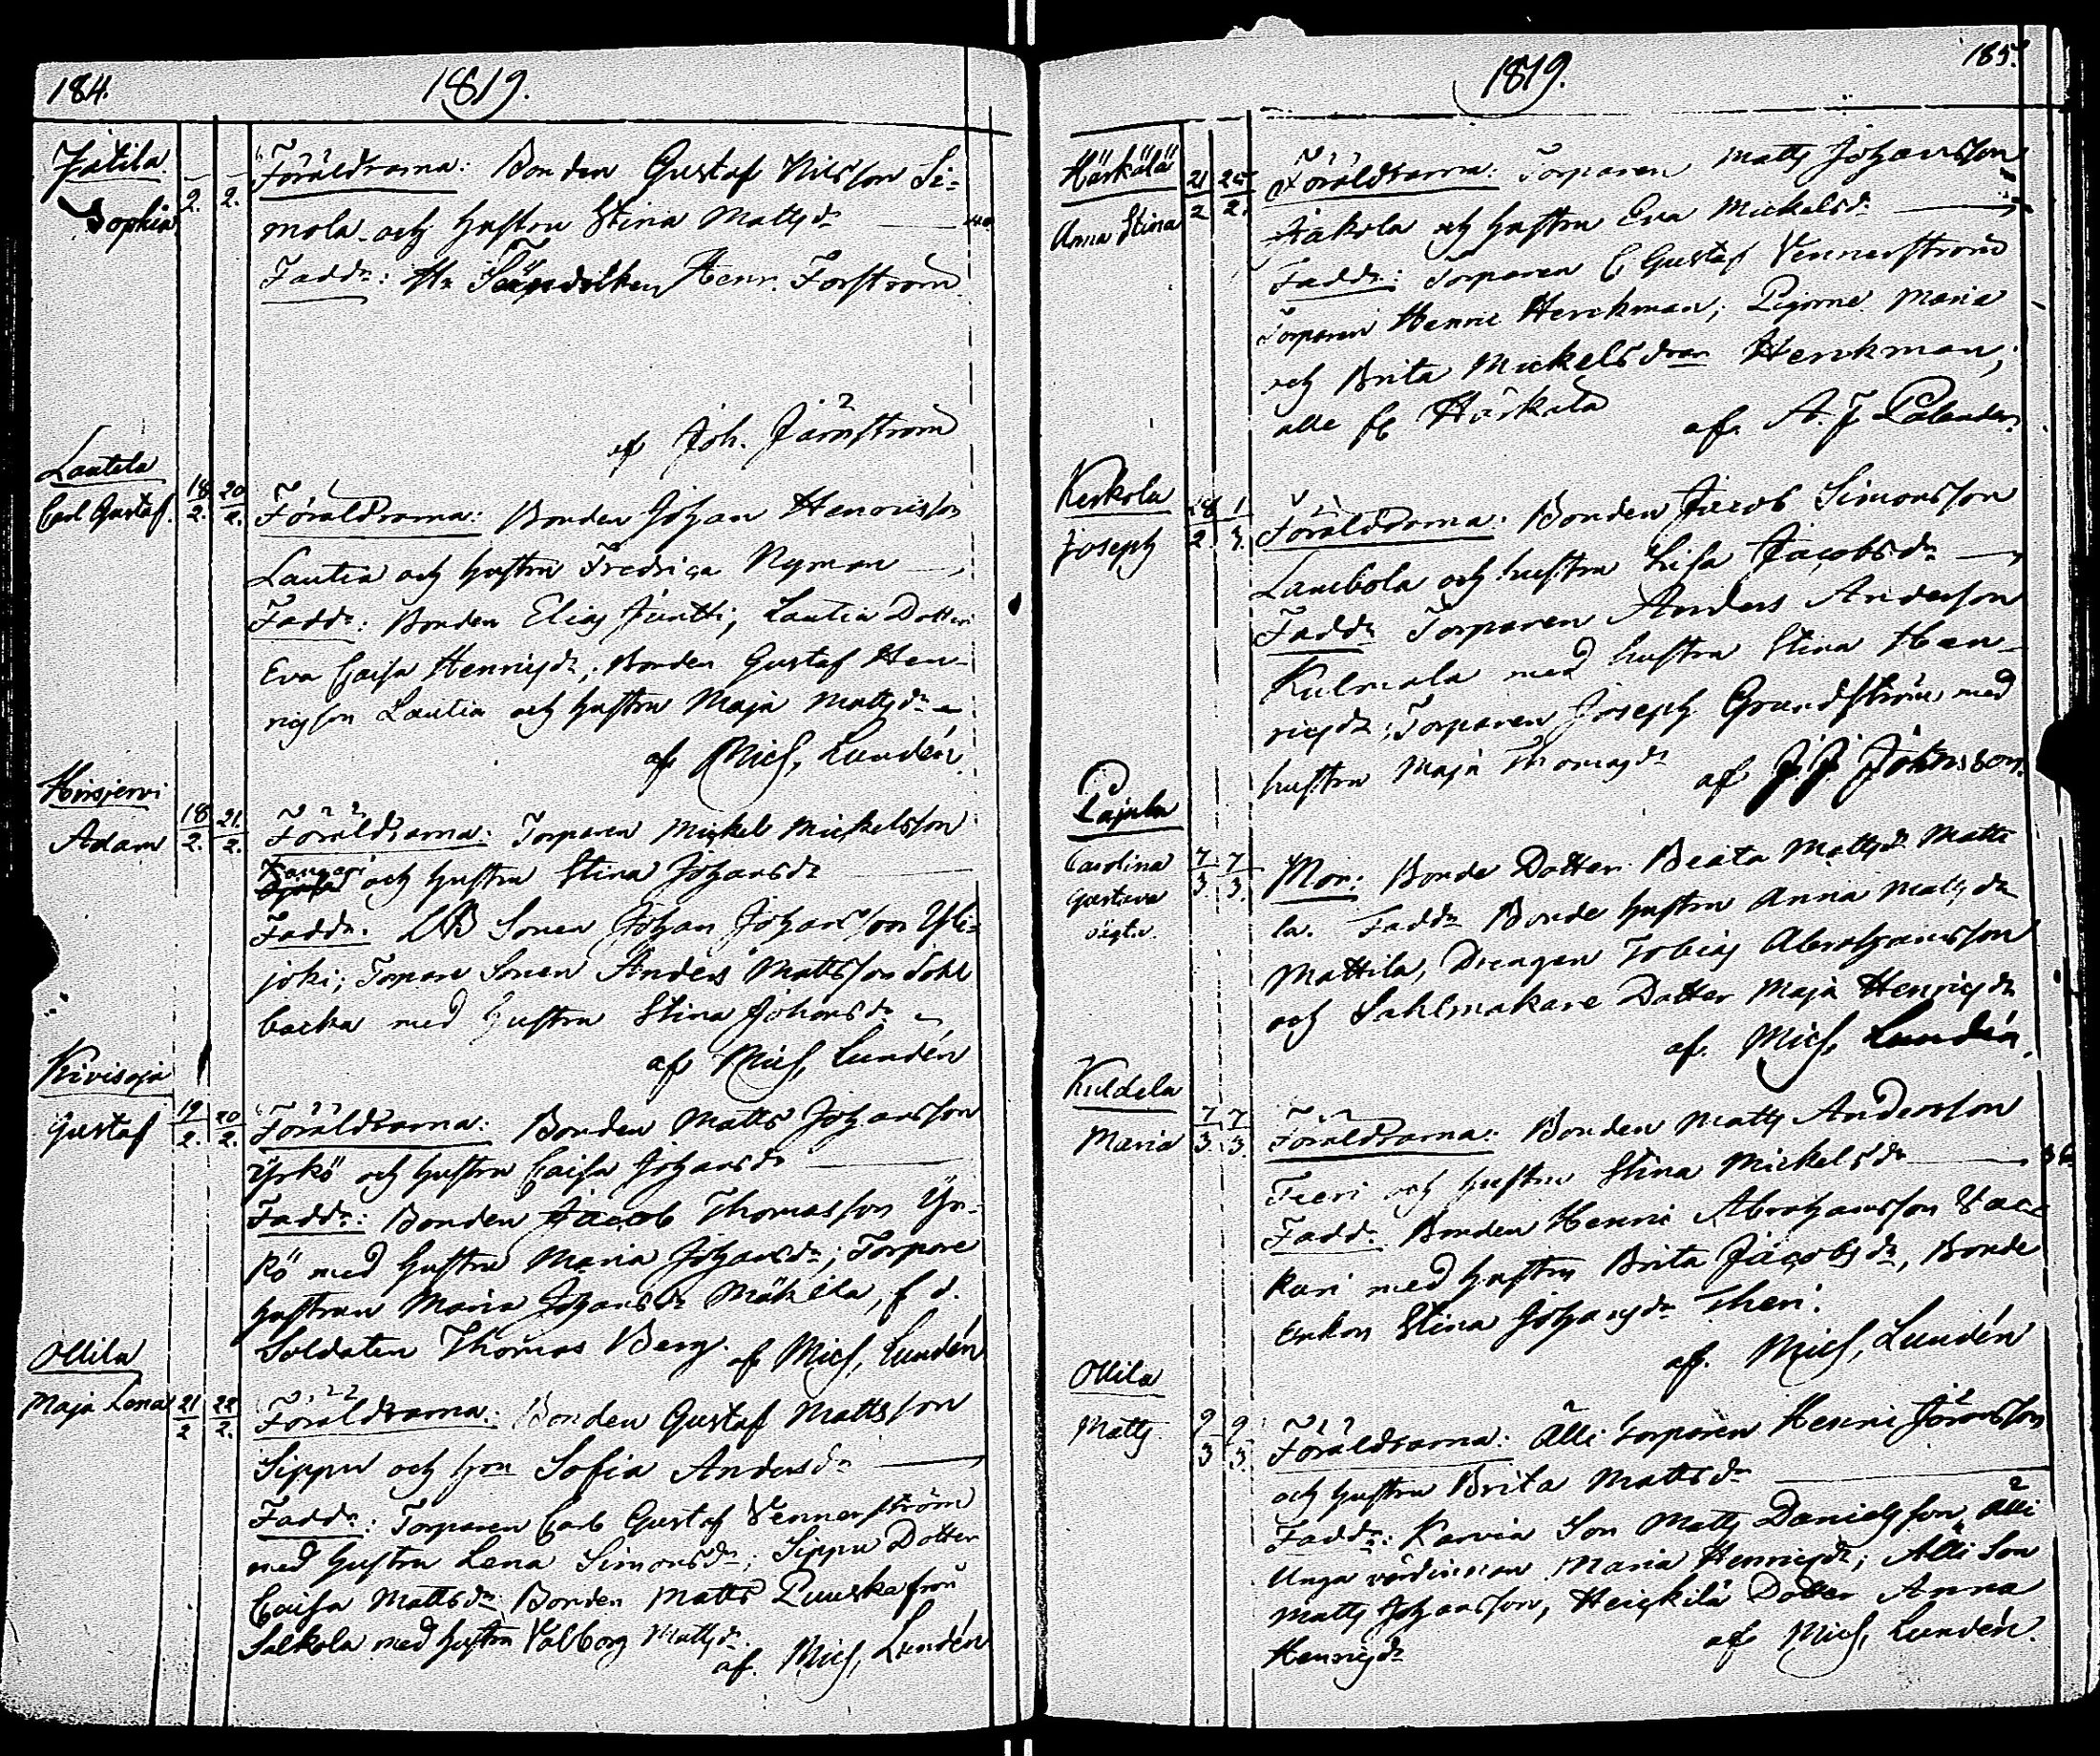 184.
1819.
Jätila
Sophia
2. 2.
Föräldrarna: Bonden Gustaf Nilsson Si-
mola och hustru Stina Mattsdr
Faddr: Henr. Forström
af Joh. Järnström
Lautela
Carl Gustaf.
18/2. 20/2.
Föräldrarna: Bonden Johan Henricsson
Lautia och hustru Fredrica Nyman
Faddr: Bonden Elias Juntti; Lautia Dotter
Eva Caisa Henricsdr; Bonden Gustaf Hen-
ricsson Lautia och hustru Maja Mattsdr
af Mich. Lundén
Hirsjervi
Adam
18/2. 21/2.
Föräldrarna: Torparen Mickel Mickelsson
och hustru Stina Johansdr
Faddr: Sonen Johan Johansson Yli-
joki; Torpare Sonen Anders Mattsson
backa med hustru Stina Johansdr
af Mich. Lundén
Kivisoja
Gustaf
19/2. 20/2.
Föräldrarna: Bonden Matts Johansson
Yrkö och hustru Caisa Johansdr
Faddr: Bonden Jacob Thomasson Yr-
kö med hustru Maria Johansdr; Torpare
hustrun Maria Johansdr Mäkilä, f d.
Soldaten Thomas Berg. af Mich. Lundén
Ollila
Maja Lena
21/2 22/2.
Föräldrarna: Bonden Gustaf Mattsson
Sippu och hon Sofia Andersdr
Faddr: Torparen Carl Gustaf Vennerström
med hustru Lena Simonsdr; Sippu Dotter
Caisa Mattsdr Bonden Matts Puuska från
Salkola med hustru Valborg Mattsdr.
af. Mich. Lundén
1819.
185.
Härkälä
Anna Stina
21/2 25/2.
Föräldrarna: Torparen Matts Johansson
och hustru Eva Mickelsdr
Faddr: Torparen C Gustaf Vennerström
Torparen Henric Herckman; Pigorne Maria
och Brita Mickelsdrar Herckman,
alle fr Härkälä
af. A. J. Palander
Kerkola
Joseph
28/2 1/3.
Föräldrarna: Bonden Jacob Simonsson
Lambola och hustru Lisa Jacobsdr
Faddr Torparen Anders Andersson
Kulmala med hustru Stina Hen-
ricsdr; Torparen Joseph Grundström med
hustru Maja Thomasdr
af J. J. Johnsson.
Pajula
Carolina
Gustava
oägt.
7/3 7/3.
Mor: Bonde Dotter Beata Mattsdr Matti-
la. Faddr Bonde hustru Anna Mattsdr
Mattila, Drengen Tobias Abrahamsson
och Sahlmakare Dotter Maja Henricsdr
af. Mich. Lundén.
Kuldela
Maria
7/3. 7/3.
Föräldrarna: Bonden Matts Andersson
Teeri och hustru Stina Mickelsdr
Faddr Bonden Henric Abrahamsson
kari med hustru Brita Jacobsdr, Bonde
enkan Stina Johansdr Theri.
af. Mich. Lundén
Ollila
Matts
9/3 9/3.
Föräldrarna: Älli torparen Henric Jöransson
och hustru Brita Mattsdr
Faddr: Karvia Son Matts Danielsson, Älli
Unga värdinnan Maria Henricsdr; Älli Son
Matts Johansson, Heickilä Dotter Anna
Henricsdr
af Mich. Lundén.